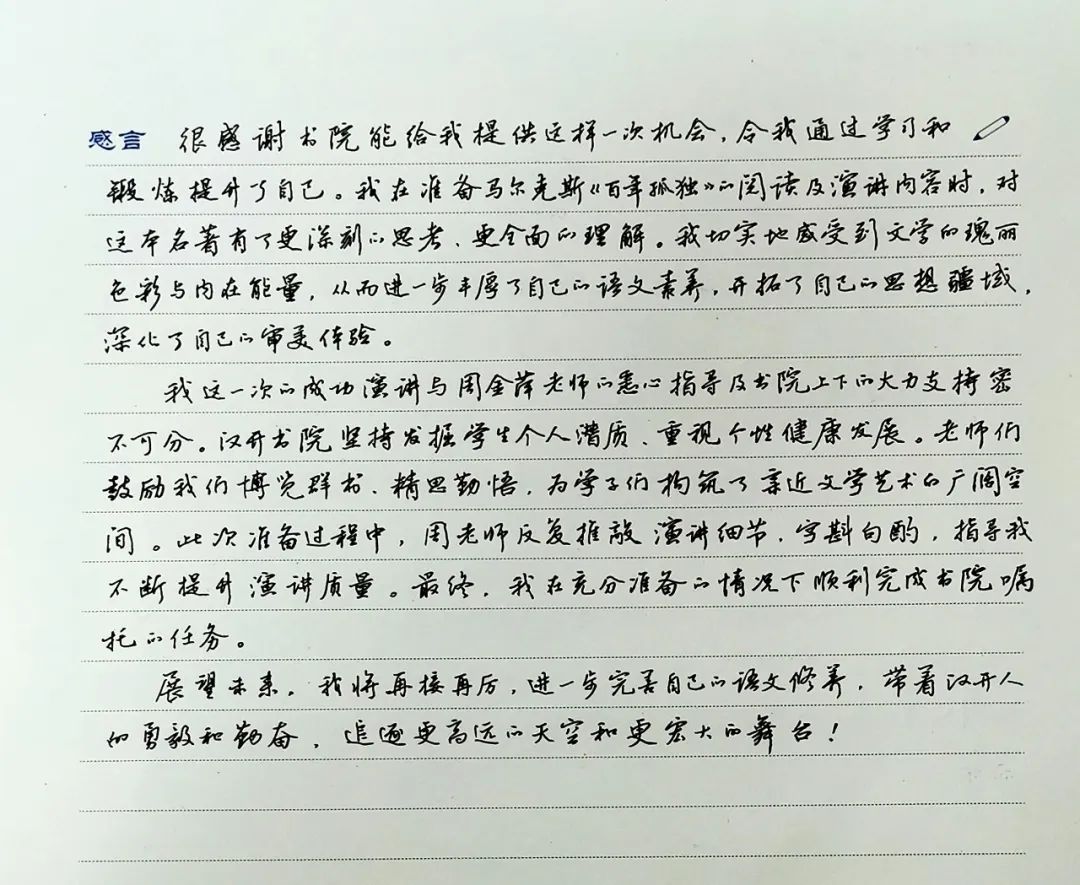 感言 很感谢书院能给我提供这样一次机会,令我通过学习和
锻炼提升了自己。我在准备马尔克斯《百年孤独》的阅读及演讲内容时,对
这本名著有了更深刻的思考、更全面的理解。我切实地感受到文学的瑰丽
色彩与内在能量,从而进一步丰厚了自己的语文素养,开拓了自己的思想疆域,
深化了自己的审美体验。
我这一次的成功演讲与周金萍老师的悉心指导及书院上下的大力支持密
不可分。汉开书院坚持发掘学生个人潜质、重视个性健康发展。老师们
鼓励我们博览群书、精思勤悟,为学子们构筑了亲近文学艺术的广阔空
间。此次准备过程中,周老师反复推敲演讲细节,字斟句酌,指导我
不断提升演讲质量。最终,我在充分准备的情况下顺利完成书院嘱
托的任务。
展望未来,我将再接再厉,进一步完善自己的语文修养,带着汉开人
的勇毅和勤奋,追逐更高远的天空和更宏大的舞台!